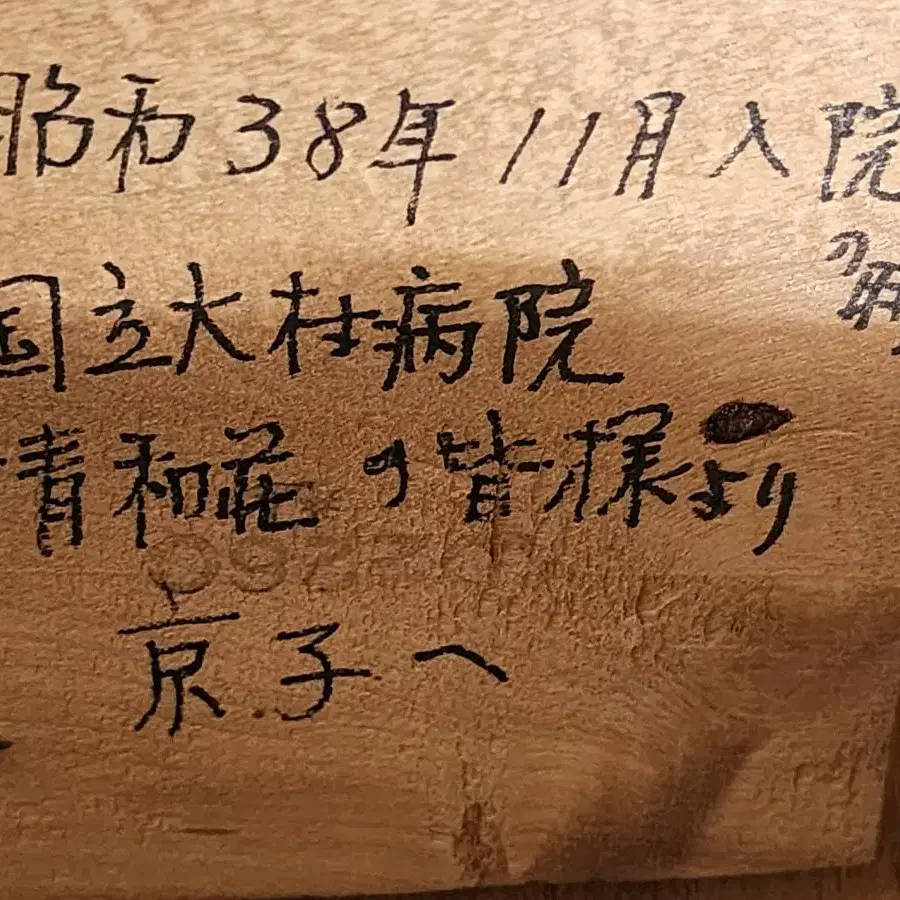 昭和38年11月入院
の
国立大村病院
青和荘の皆様より
京子へ